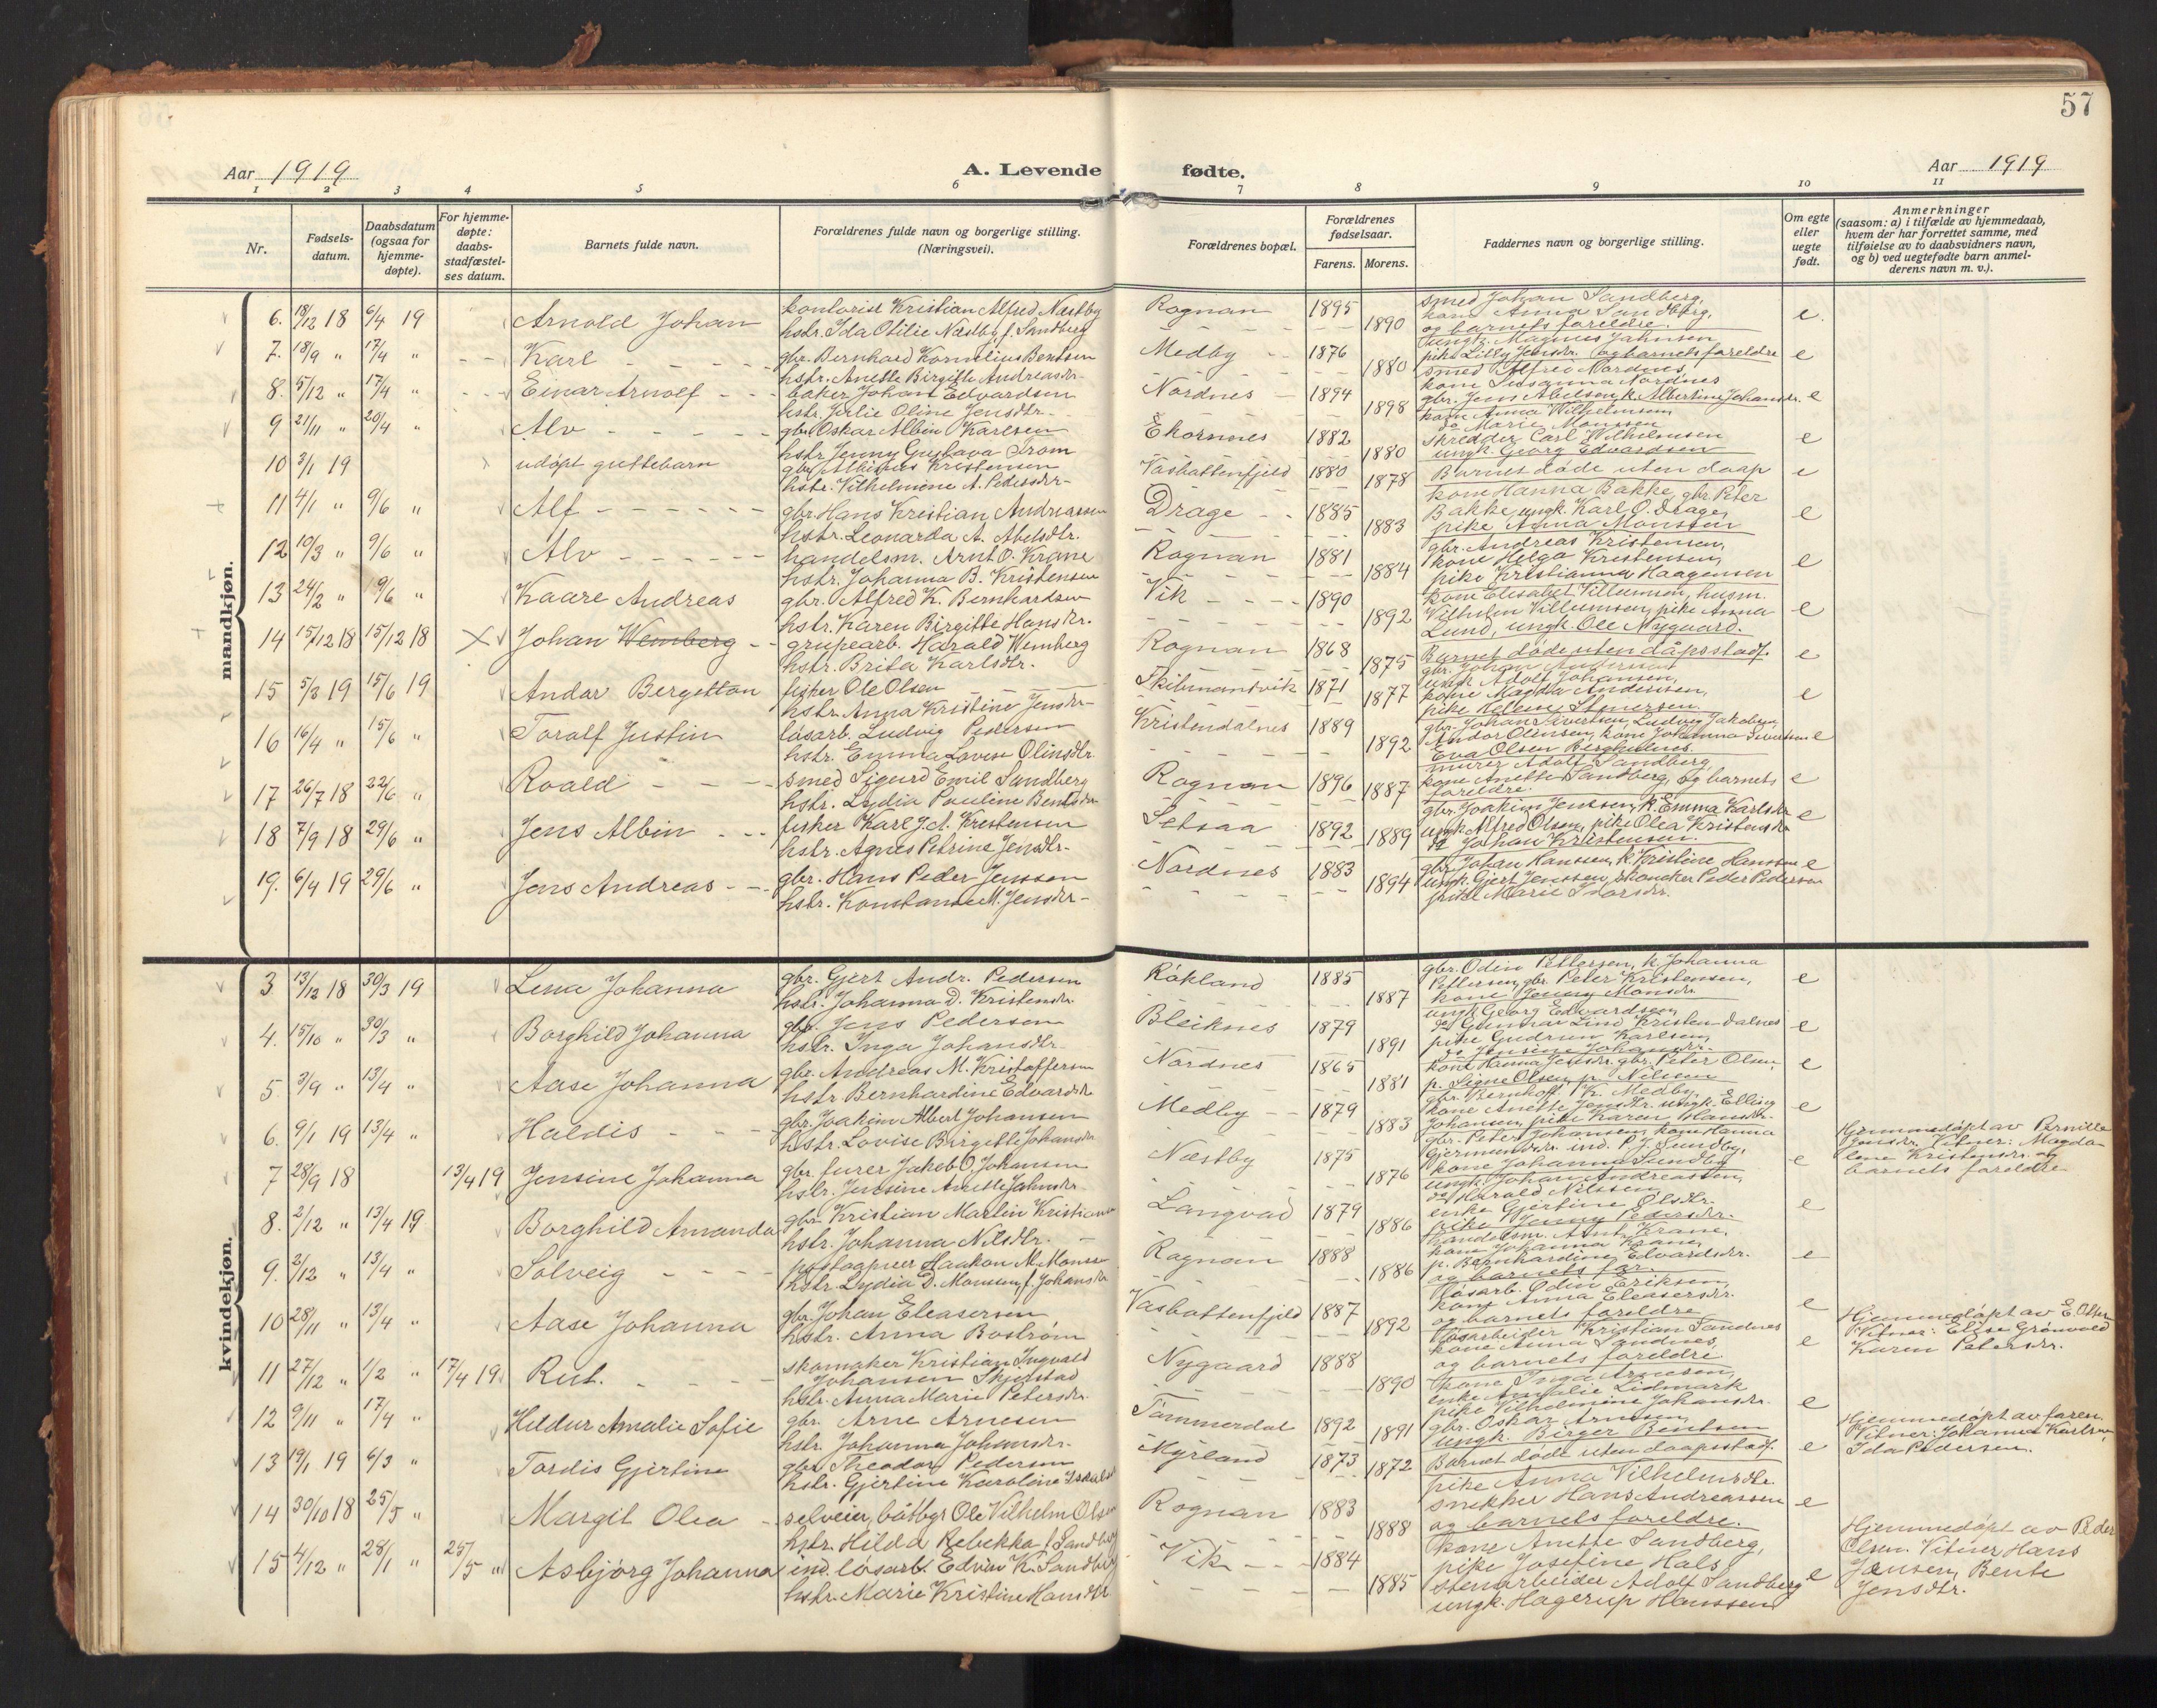 57
Aar 1919
A. Levende fødte.
Aar 1919
1 2 3 4 5 6 7 8 9 10 11
Nr.
Fødsels-
datum.
Daabsdatum
(ogsaa for
hjemme-
døpte).
For hjemme-
døpte:
daabs-
stadfæstel-
ses datum.
Barnets fulde navn.
Forældrenes fulde navn og borgerlige stilling.
(Næringsvei).
Forældrenes bopæl.
Forældrenes
fødselsaar.
Farens. Morens.
Faddernes navn og borgerlige stilling.
Om egte
eller
uegte
født.
Anmerkninger
(saasom: a) i tilfælde av hjemmedaab,
hvem der har forrettet samme, med
tilføielse av to daabsvidners navn,
og b) ved uegtefødte barn anmel-
derens navn m. v.).
mandkjøn.
6. 18/12 18 6/4 19 Arnold Johan kontorist Kristian Alfred Næstby Rognan 1895 smed Johan Sandberg, e.
hstr. Ida Otilie Næstby, f. Sandberg 1890 kone Anna Sandberg,
og barnets foreldre.
7. 18/9 " 17/4 " Karl gbr. Bernhard Kornelius Bentsen Medby 1876 ungk. Magnus Jahnsen e
hstr. Anette Birgitte Andreasdr. 1880 pike Lilly Jensdr. og barnets foreldre
8. 5/12 " 17/4 " Einar Arnolf baker Johan Edvardsen Nordnes 1894 smed Alfred Nordnes, e
hstr. Julie Oline Jensdtr. 1898 kone Susanna Nordnes
gbr. Jens Abelsen, k. Albertine Johansdr.
9 21/11 " 20/4 " Alv gbr. Oskar Albin Karlsen Ekornnes 1882 kone Anna Wilhelmsen, e
hstr Jenny Gustava Trom 1880 do Marie Monssen
skredder Carl Wilhelmsen
ungk. Georg Edvardsen
10 3/1 19 udøpt guttebarn gbr. Albinus Kristensen Vasbottenfjeld 1880 Barnet døde uten daap e
hstr. Vilhelmine A. Pedersdr. 1878
11 4/1 " 9/6 " Alf gbr. Hans Kristian Andreassen Drage 1885 kone Hanna Bakke, gbr. Peter e
hstr. Leonarda A. Abelsdtr. 1883 Bakke, ungk. Karl O. Drage,
pike Anna Monssen
12 10/3 " 9/6 " Alv handelsm. Arnt O. Krane Rognan 1881 gbr. Andreas Kristensen, e
hstr. Johanna B. Kristensen 1884 kone Helga Kristensen,
pike Kristianna Haagensen
13 24/2 " 9/6 " Kaare Andreas gbr. Alfred K. Bernhardsen Vik 1890 kone Elisabet Villumsen, husm. e
hstr. Karen Birgitte Hansdr. 1892 Vilhelm Villumsen, pike Anna
Lund, ungk. Ole Nygaard.
14 15/12 18 15/12 18 Johan Wemberg grupearb. Harald Wemberg Rognan 1868 Barnet døde uten dåpsstadf. e
hstr. Brita Karlsdtr. 1875
15 5/3 19 15/6 19 Andor Bergetton fisker Ole Olsen Skibmandvik 1871 gbr. Johan Andersen e
hstr. Anna Kristine Jensdr. 1877 ungk Adolf Johansen,
kone Magda Andersen,
pike Helene Stenersen.
16 16/4 " 15/6 " Toralf Justin løsarb. Ludvig Pedersen Kristendalnes 1889 gbr. Johan Sivertsen, Ludvig Jakobsen, e
hstr. Emma Lovise Olinsdtr. 1892 Andor Olinsen, kone Johanna Sivertsen
Eva Olsen Bergholnes.
17 26/7 18 22/6 " Roald smed Sigurd Emil Sandberg Rognan 1896 murer Adolf Sandberg, e
hstr. Lydia Pauline Bentsdr. 1887 kone Anette Sandberg, og barnets
foreldre.
18 7/9 18 29/6 " Jens Albin fisker Karl J. A. Kristensen Setsaa 1892 gbr. Joakim Jenssen, k. Emma Karlsdr. e
hstr. Agnes Petrine Jensdtr. 1889 ungk. Alfred Olsen, pike Olea Kristensdr.
do Johan Kristensen.
19. 6/4 19 29/6 " Jens Andreas gbr. Hans Peder Jenssen Nordnes 1883 gbr. Johan Hanssen, k. Kristine Hanssen e
hstr. Konstanse M. Jensdr. 1894 ungk. Gjert Jenssen, skomaker Peder Pedersen
pike Marie Ivarsdr.
kvindekjøn.
3 13/12 18 30/3 19 Lena Johanna gbr. Gjert Andr. Pedersen Røkland 1885 gbr. Odin Pettersen, k. Johanna e
hstr. Johanna D. Kristensdr. 1887 Pettersen, gbr. Peter Kristensen,
kone Jenny Monsdr.
4. 15/10 " 30/3 " Borghild Johanna gbr. Jens Pedersen Bleiknes 1879 ungk Georg Edvardsen, e
hstr. Inga Johansdtr. 1891 do Gunnar Lind Kristen-dalnes
pike Gudrun Karlsen,
do Jensine Johansdr.
5 3/9 " 13/4 " Aase Johanna gbr. Andreas M. Kristoffersen Nordnes 1865 kone Hanna Jensdr. gbr. Peter Olsen, e
hstr Bernhardine Edvardsdr. 1881 p. Signe Olsen, p. Nilsen
6. 9/1 19 13/4 " Haldis gbr. Joakim Albert Johansen Medby 1879 gbr. Bernhoff K. Medby, e
hstr. Lovise Birgitte Johansdr. 1883 kone Anette Jensdtr. ungk. Elling
Johansen, pike Karen Hansdr.
7 28/9 18 13/4 19 Jensine Johanna gbr. furer Jakob O. Johansen Næstby 1875 gbr. Peter Johansen, kone Hanna e Hjemmedøpt av Pernille
hstr. Jensine Anette Jahnsdr. 1876 Gjermundsdr. ind. P. J. Sundby, Jensdr. Vitner: Magda-
kone Johanna Sundby lene Kristensdr. og
ungk. Johan Andreassen, barnets foreldre
8. 2/12 " 13/4 19 Borghild Amanda gbr. Kristian Martin Kristiansen Langvad 1879 do Harald Nilssen e
hstr. Johanna Nilsdtr. 1886 enke Gjertine Olsdtr.
pike Jenny Pedersdr.
9. 2/12 " 13/4 " Solveig postaapner Haakon M. Monsen Rognan 1888 Handelsm. Arnt Krane, e
hstr. Lydia D. Monsen, f. Johansdr. 1886 kone Johanna Krane,
p. Bernhardine Edvardsdr.
og barnets far.
10 28/11 " 13/4 " Aase Johanna gbr. Johan Eleasersen Vasbottenfjeld 1887 løsarb. Odin Eriksen, e
hstr. Anna Bostrøm 1892 kone Anna Eleasersdr.
og barnets foreldre
11 27/12 " 1/2 " 17/4 19 Rut. skomaker Kristian Ingvald Nygaard 1888 løsarbeider Kristian Sandnes e Hjemmedøpt av E. Olsen
Johansen Skjelstad 1890 kone Anna Sandnes, Vitner: Elise Grønvold
hstr. Anna Marie Petersdr. og barnets foreldre. Karen Petersdr.
12 9/11 " 17/4 " Heldur Amalie Sofie gbr. Arne Arnesen Tømmerdal 1892 kone Inga Arnesen, e
hstr. Johanna Johansdr. 1891 enke Amalie Lidmark
pike Vilhelmine Johansdr.
gbr. Oskar Arnesen,
ungk. Birger Bentsen
13 19/1 19 6/3 " Tordis Gjertine gbr. Theodor Pedersen Myrland 1873 Barnet døde uten daapsstadf. e Hjemmedøpt av faren.
hstr. Gjertine Karoline 1872 Vitner: Johanna Karlsen,
Ida Pedersen.
14 30/10 18 25/5 " Margit Olea selveier, båtbygr Ole Vilhelm Olsen Rognan 1883 pike Anna Vilhelmsdtr. e
hstr. Hilda Rebekka f. Sandberg 1888 snekker Hans Andreassen
og barnets foreldre.
15 4/12 " 28/1 " 25/5 " Asbjørg Johanna ind. løsarb. Edvin K. Sandberg Vik 1884 kone Anette Sandberg, e Hjemmedøpt av Peder
hstr. Marie Kristine Hansdtr 1885 pike Josefine Hals, Olsen. Vitner Hans
stenarbeider Adolf Sandberg Jensen, Bente
ungk. Hagerup Hanssen Jensdtr.